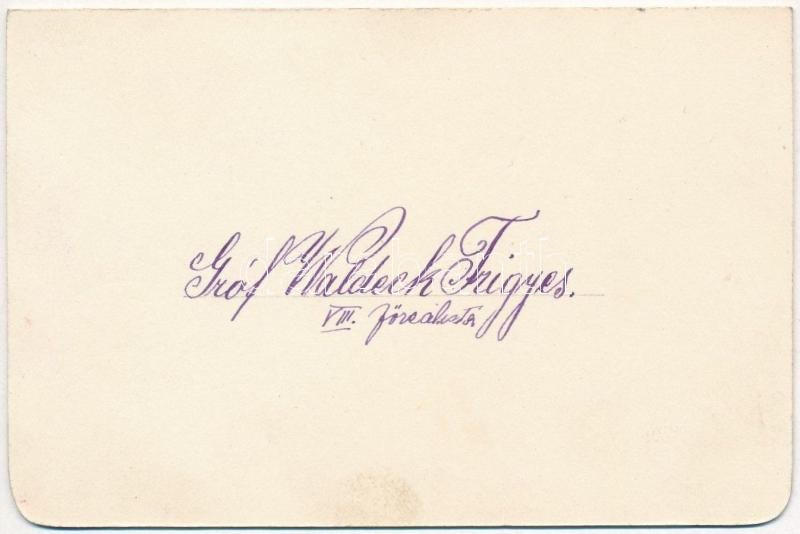 Gróf Waldeck Frigyes.
VIII. főreálista